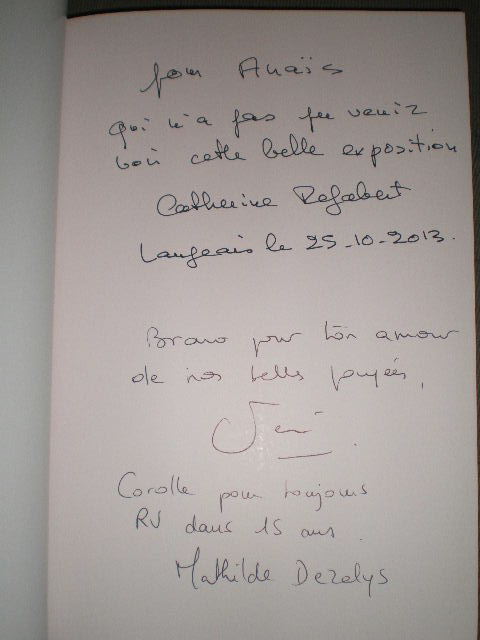 pour Anaïs
qui n'a pas pu venir
voir cette belle exposition
Catherine Refabert
Langeais le 25-10-2013.
Bravo pour ton amour
de nos belles poupées,
Corolle pour toujours
RV dans 15 ans.
Mathilde Dezalys